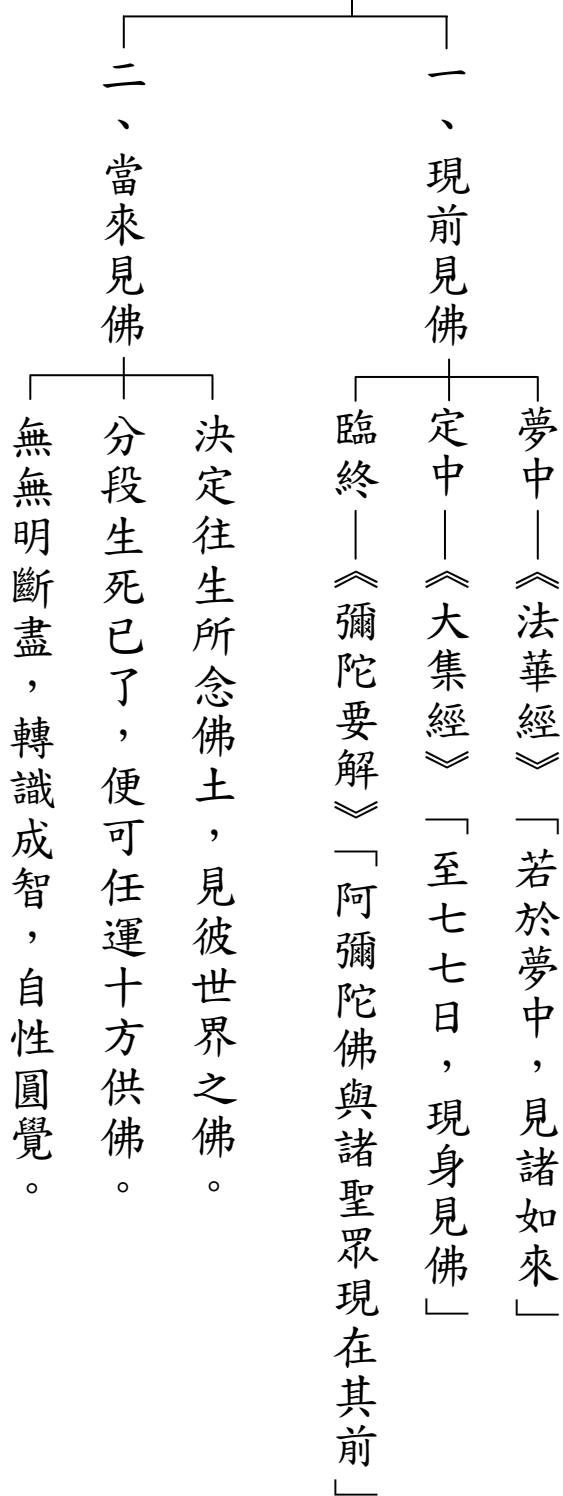 一、現前見佛
夢中——《法華經》「若於夢中，見諸如來」
定中——《大集經》「至七七日，現身見佛」
臨終——《彌陀要解》「阿彌陀佛與諸聖眾現在其前」
二、當來見佛
決定往生所念佛土，見彼世界之佛。
分段生死已了，便可任運十方供佛。
無無明斷盡，轉識成智，自性圓覺。